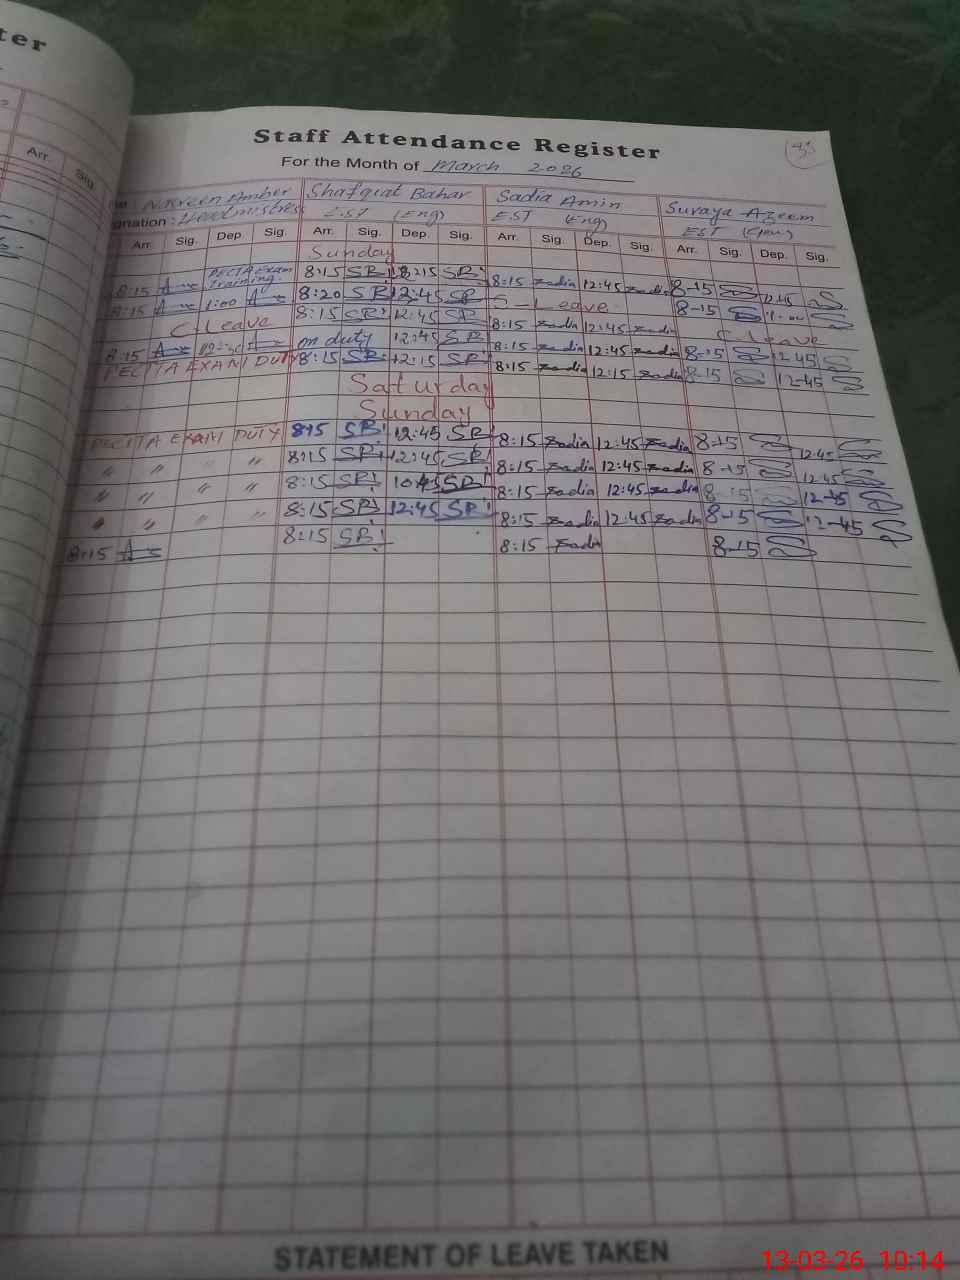 ter
Arr. Sig.
Staff Attendance Register
For the Month of March 2026
Nasreen Amber Shafquat Bahar Sadia Amin Suraya Azeem
gnation : Headmistress EST (Eng) EST (Eng) EST (Gen.)
Arr. Sig. Dep. Sig. Arr. Sig. Dep. Sig. Arr. Sig. Dep. Sig. Arr. Sig. Dep. Sig.
Sunday
8:15 PECTA Exam Training. 8:15 SB! 12:15 SB! 8:15 Sadia 12:45 Sadia 8-15 12-45
8:15 1:00 8:20 SB! 12:45 SB S-Leave 8-15
C-Leave 8:15 SB! 12:45 SB 8:15 Sadia 12:45 Sadia C Leave
8:15 12:30 on duty 12:45 SB 8:15 Sadia 12:45 Sadia 8-15 12-45
PECTA EXAM DUTY 8:15 SB. 12:15 SB! 8:15 Sadia 12:15 Sadia 8-15 12-45
Saturday
Sunday
PECTA EXAM DUTY 8:15 SB! 12:45 SB! 8:15 Sadia 12:45 Sadia 8-15 12-45
" " " " 8:15 SB! 12:45 SB! 8:15 Sadia 12:45 Sadia 8-15 12-45
" " " " 8:15 SB! 10:45 SB! 8:15 Sadia 12:45 Sadia 8-15 12-45
" " " " 8:15 SB! 12:45 SB! 8:15 Sadia 12:45 Sadia 8-15 12-45
8:15 8:15 SB! 8:15 Sadia 8-15
STATEMENT OF LEAVE TAKEN
13-03-26 10:14